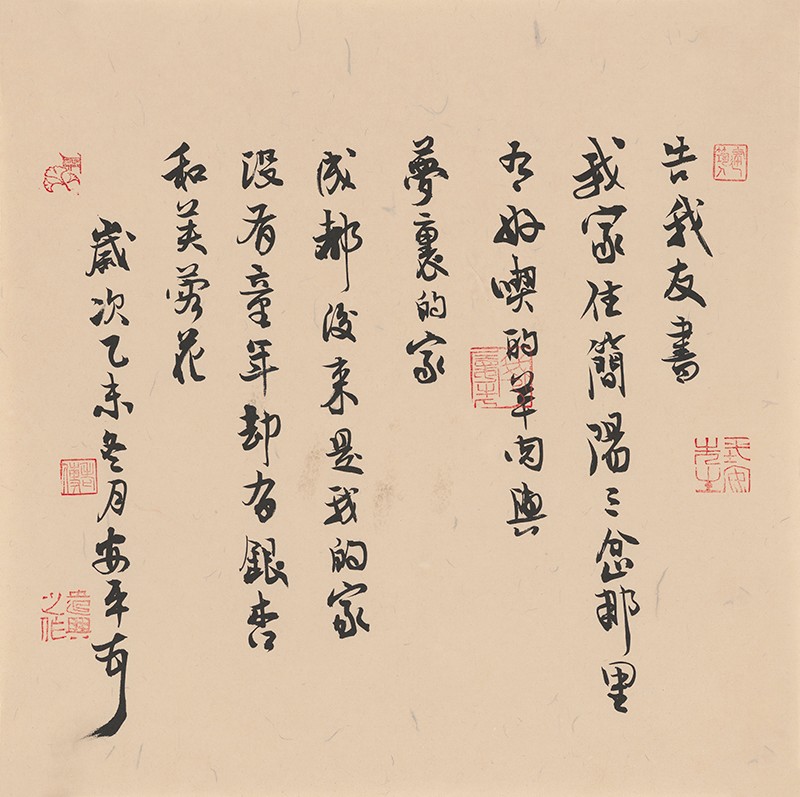 告我友書
我家住簡陽三岔那里
有好喫的羊肉與
夢裏的家
成都後來是我的家
沒有童年却有銀杏
和芙蓉花
歲次乙未冬月安平